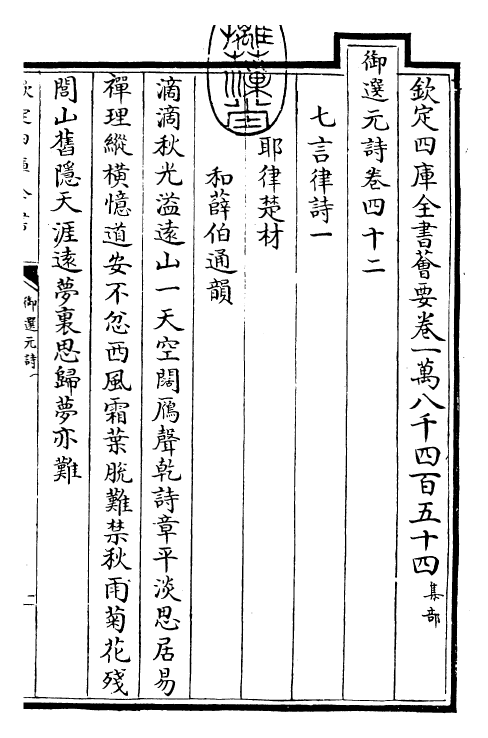 欽定四庫全書薈要卷一萬八千四百五十四 集部
御選元詩卷四十二
七言律詩一
耶律楚材
和薛伯通韻
滴滴秋光溢遠山一天空闊鴈聲乾詩章平淡思居易
禪理縱橫憶道安不忿西風霜葉脫難禁秋雨菊花殘
閭山舊隱天涯遠夢裏思歸夢亦難
御選元詩